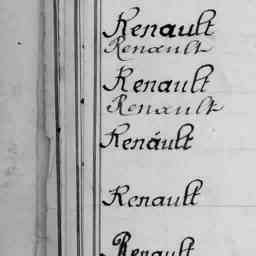 Renault
Renault
Renault
Renault
Renault
Renault
Renault